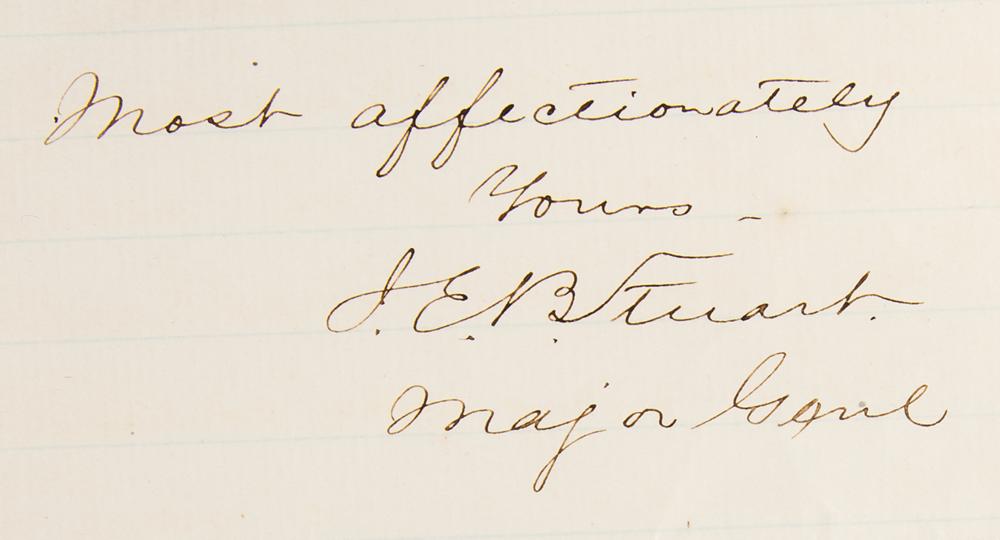 Most affectionately
Yours -
J. E. B. Stuart.
Major Genl